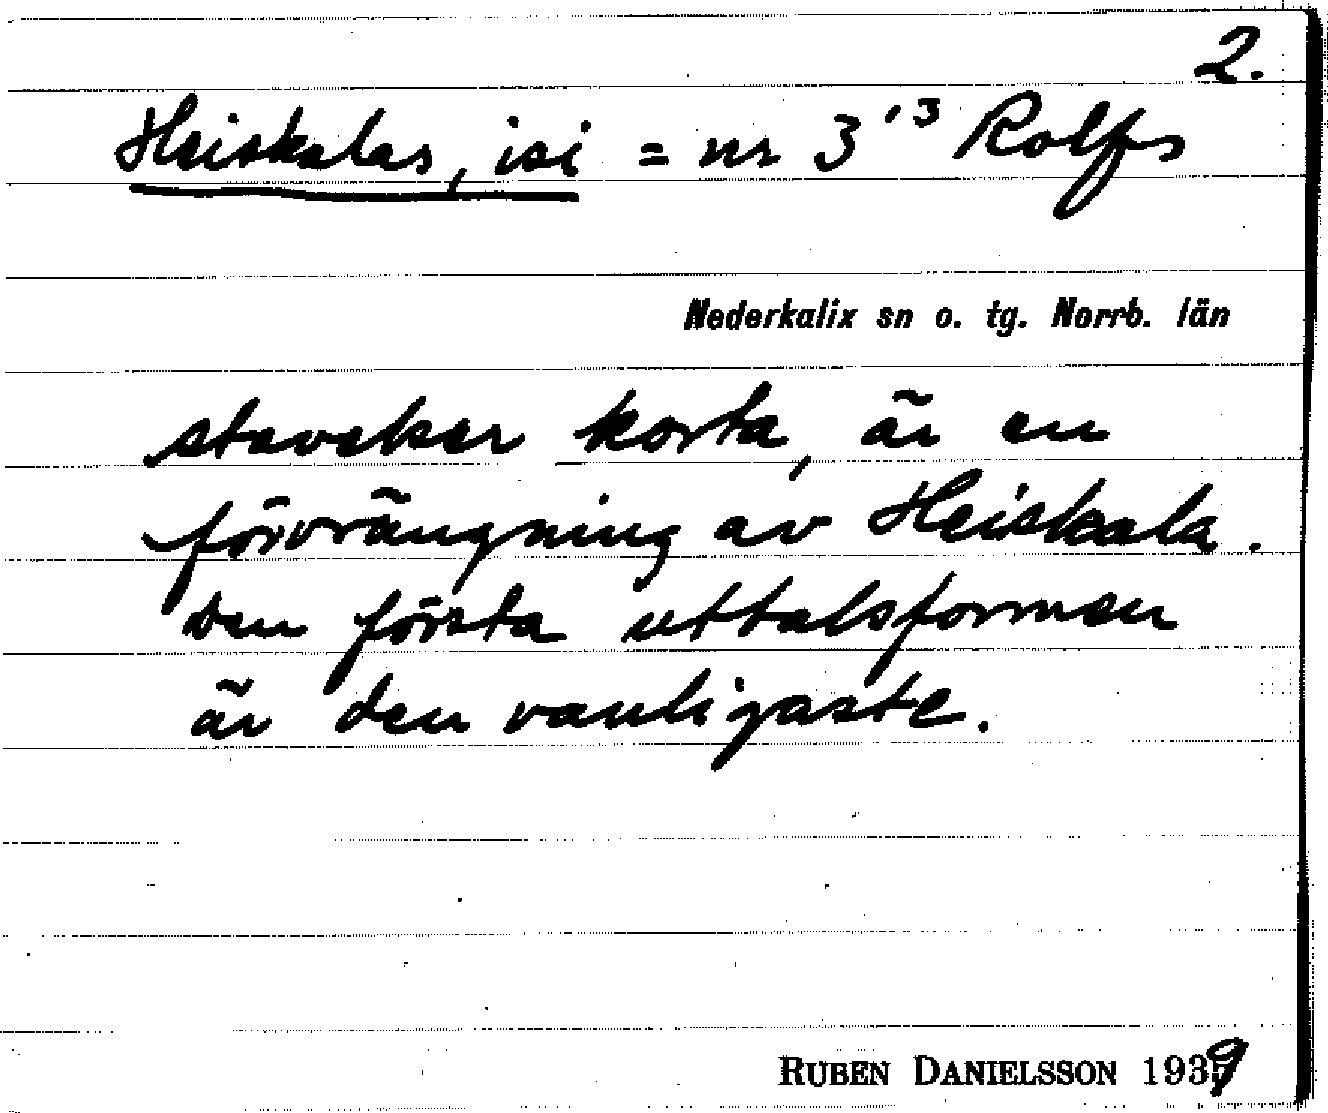 2.
Heiskalas, isi = nr 3¹³ Rolfs
Nederkalix sn o. tg. Norrb. län
stavelser korta, är en
förvrängning av Heiskala.
Den första uttalsformen
är den vanligaste.
RUBEN DANIELSSON 1939